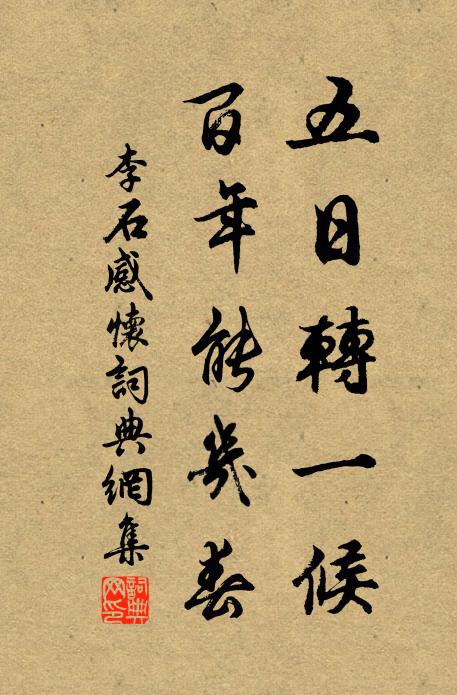 五日轉一候
百年能幾春
李石感懷詞典網集
詞典
網印